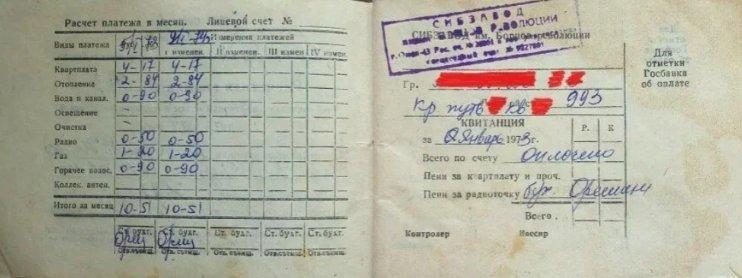 Расчет платежа в месяц. Лицевой счет №
Виды платежа
Измерения платежей
I измен. II измен. III измен IV измен.
Квартплата 4-17 4-17
Отопление 2-84 2-84
Вода и канал. 0-90 0-90
Освещение
Очистка
Радио 0-50 0-50
Газ 1-20 1-20
Горячее водос. 0-90 0-90
Коллек. антен.
Итого за месяц 10-51 10-51
Ст. бухг. Ст. бухг. Ст. бухг. Ст. бухг. Ст. бухг.
Отв.съемщ. Отв.съемщ. Отв.съемщ. Отв.съемщ. Отв.съемщ.
СИБЗАВОД
РЕВОЛЮЦИИ
СИБЗАВОД им. Борцов революции
Гр.
Кр путь кв 993
КВИТАНЦИЯ
Р. К
за Январь 1973г.
Всего по счету Оплочено
Пени за квартплату и проч.
Пени за радиоточку бух
Всего
Контролер Кассир
Для
отметки
Госбанка
об оплате